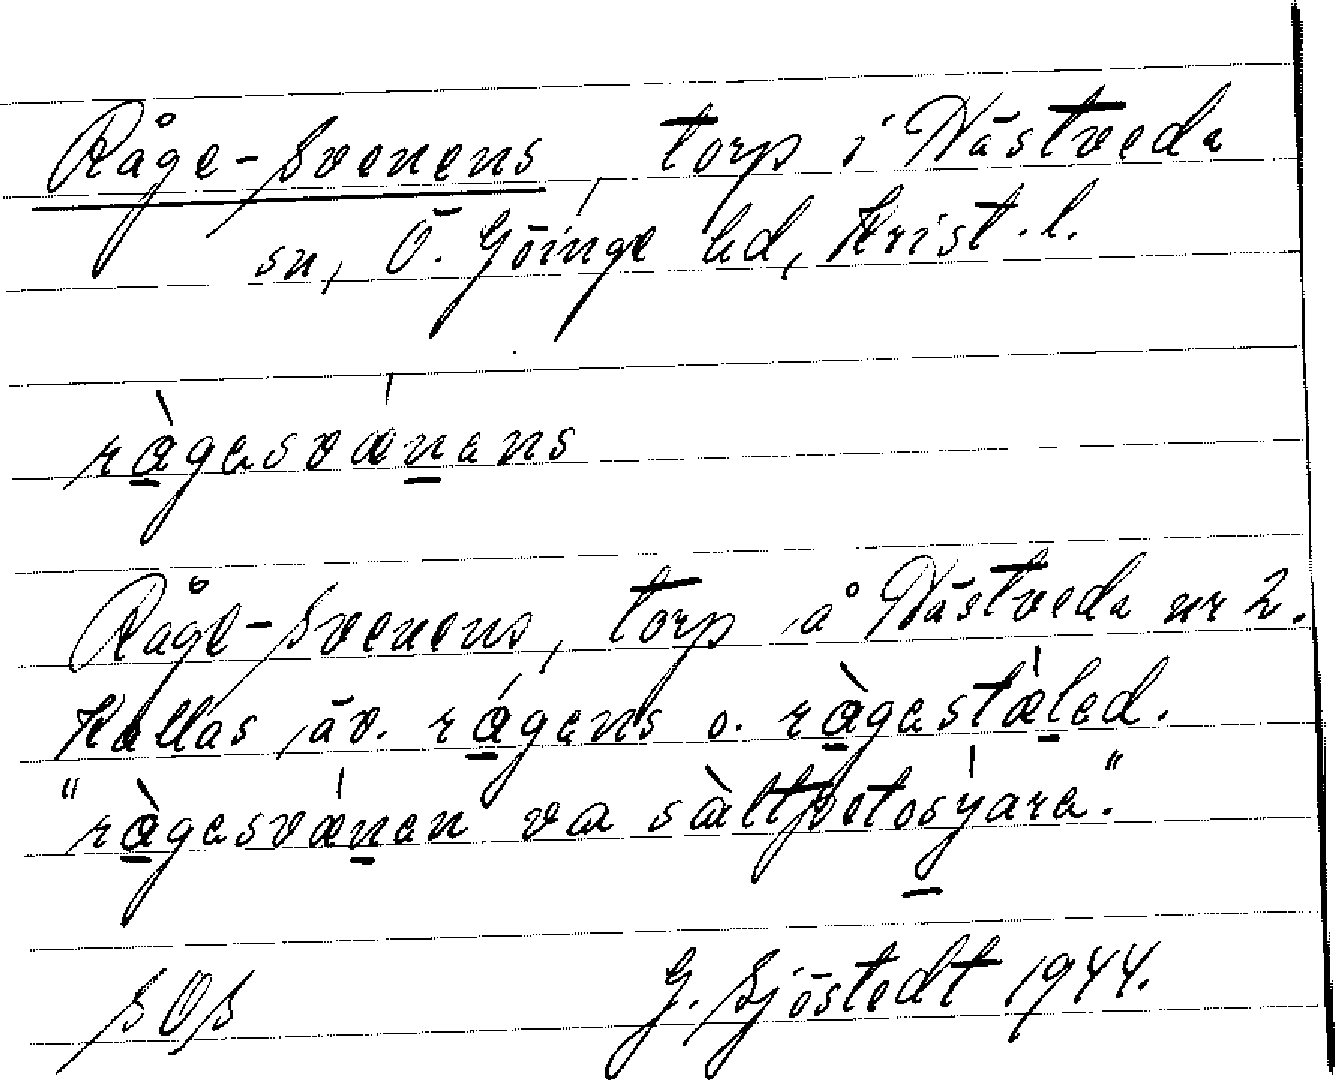 Råge-Svenens, torp i Västveda
sn, Ö. Göinge hd, Krist. l.
ràgesvænens
Råge-Svenens, torp å Västveda nr 2.
Kallas äv. rágens o. ràgestæled.
"ràgesvænen va sàltpetosyara."
SOS G. Sjöstedt 1944.